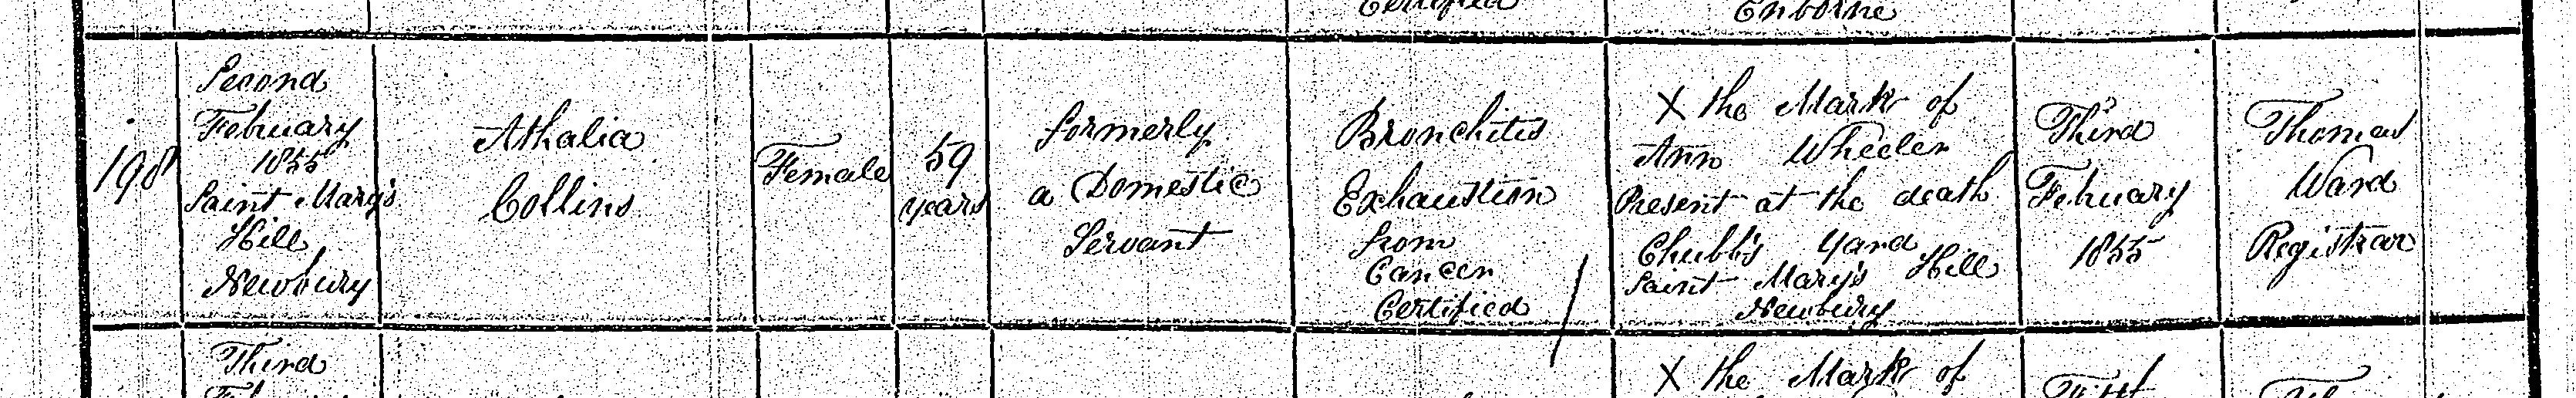 Certified
Enborne
198
Second
February
1855
Saint Mary's
Hill
Newbury
Athalia
Collins
Female
59
years
formerly
a Domestic
Servant
Bronchitis
Exhaustion
from
Cancer
Certified
X the Mark of
Ann Wheeler
Present at the death
Chubb's Yard
Saint Mary's Hill
Newbury
Third
February
1855
Thomas
Ward
Registrar
Third
X the Mark of